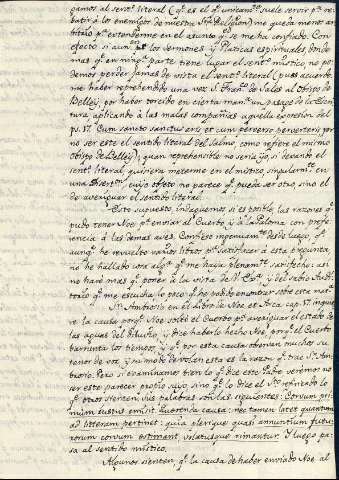 gamos al sentº literal (qᵉ es el qᵉ unicamᵗᵉ suele servir pª re-
batir à los enemigos de nuestra Sᵗª Religion) me queda menos ar-
bitrio pª estenderme en el asunto qᵉ se me ha confiado. Con
efecto si aun en los sermones, y Platicas espirituales, donde
mas qᵉ en ningª parte tiene lugar el sentº mistico, no po-
demos perder jamas de vista el sentº literal (pues acuerdo
me haber reprehendido una vez S. Franᶜº de Sales al Obispo de
Belley, por haber torcido en cierta manª un pasage de la Escri-
tura aplicando à las malas compañias aquella expresion del
ps. 17. Cum sancto sanctus eris et cum perverso perverteris por
no ser este el sentido literal del Salmo, como refiere el mismo
Obispo de Belley), quan reprehensible no seria yo, si dexando el
sentº literal, quisiera meterme en el mistico, singularmᵗᵉ en
una, cuyo objeto no parece qᵉ pueda ser otro sino el
de averiguar el sentido literal.
Esto supuesto, indaguemos si es posible, las razones qᵉ
pudo tener Noe pª enviar al Cuervo y à la Paloma con prefe-
rencia à las demas aves. Confieso ingenuamᵗᵉ desde luego, qᵉ
aunqᵉ he revuelto varios libros pª satisfacer à esta pregunta
no he hallado cosa algª qᵉ me haya plenamᵗᵉ satisfecho: asi
no haré mas qᵉ poner à la vista de V. Exª y del sabio Audi-
torio qᵉ me escucha lo poco qᵉ he podido encontrar sobre esta matª
Sⁿ Ambrosio en el Libro de Noe et Arca cap. 17 inquie-
re la causa porqᵉ Noe soltó el Cuervo pª averiguar el estado de
las aguas del diluvio, y dice haberlo hecho Noe, porqᵉ el Cuervo
barrunta los tiempos, y qᵉ por esta causa observan muchos su
tenor de voz, y su modo de volar: esta es la razon qᵉ trae Sⁿ Am-
brosio. Pero si examinamos bien lo qᵉ dice este Padre veremos no
ser este parecer propio suyo, sino qᵉ lo dice el Sᵗº refiriendo lo
qᵉ otros sienten; sus palabras son las siguientes: Corvum pri-
mum Iustus emisit. Quærenda causa: nec tamen latet quantum
ad litteram pertinet: quia plerique quasi annuntium futu-
rorum corvum estimant, volatusque rimantur. Y luego pa-
sa al sentido mistico.
Algunos sienten, qᵉ la causa de haber enviado Noe al